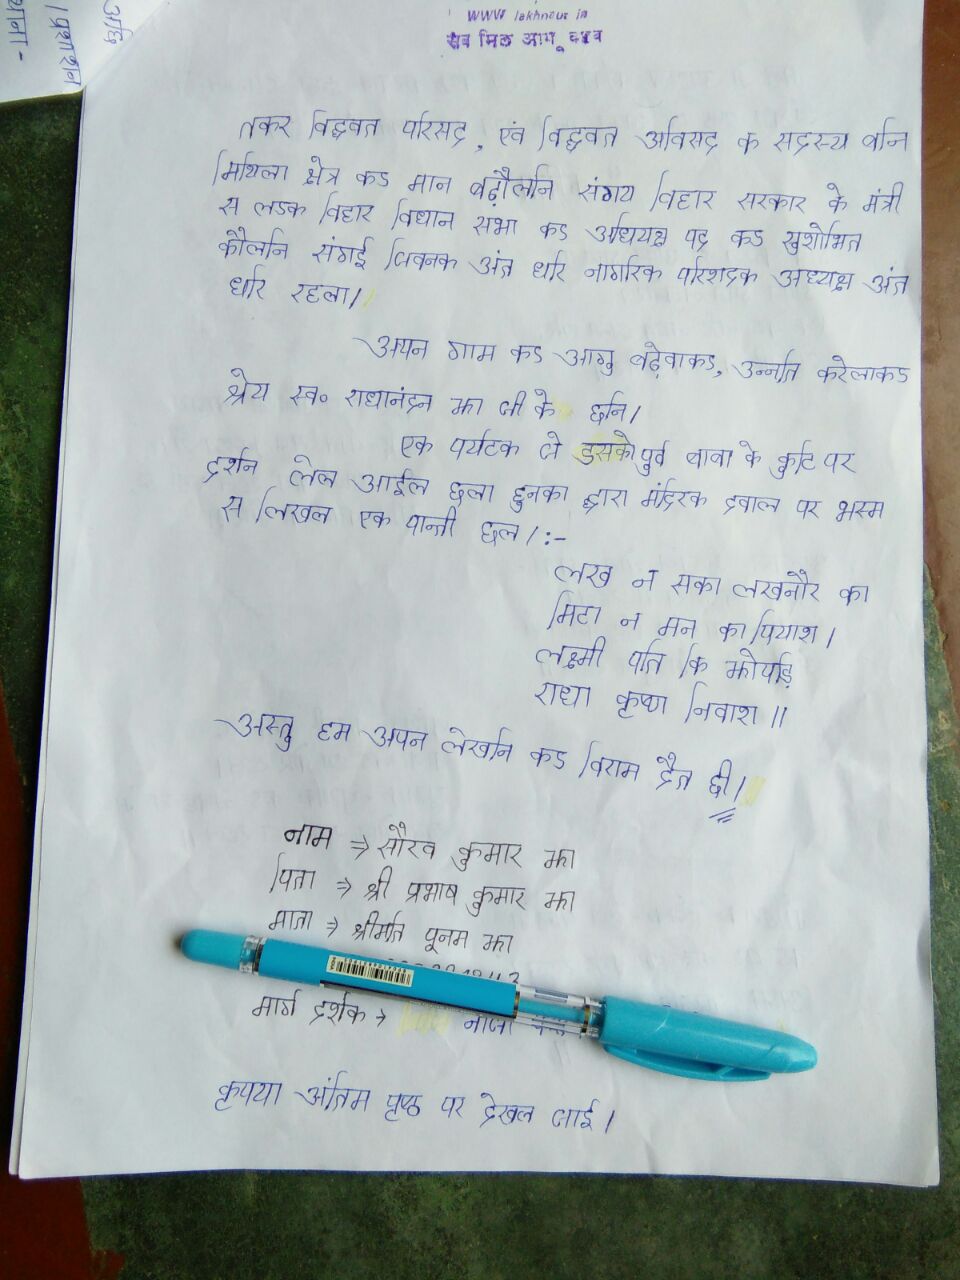 www lakhnaur in
सब मिल आगू बढ़ब
तकर विद्धवत परिसद्र, एवं विद्धवत अविसद्र क सद्रस्य बनि
मिथिला क्षेत्र कऽ मान बढ़ौलनि संगय विहार सरकार के मंत्री
स लऽक विहार विधान सभा कऽ अधियक्ष पद्र कऽ सुशोभित
कौलनि संगई जिवनक अंत धरि नागरिक परिशद्रक अध्यक्ष अंत
धरि रहला।
अपन गाम कऽ आगु बढ़ेवाकऽ, उन्नति करेलाकऽ
श्रेय स्व॰ राधानंद्रन झा जी के छनि।
एक पर्यटक जे डुसको पुर्व बाबा के कुटि पर
द्रर्शन लेल आईल छला हुनका द्वारा मंद्रिरक द्रवाल पर भस्म
स लिखल एक पान्ती छल।:-
लख न सका लखनौर का
मिटा न मन का पियाश।
लक्ष्मी पति कि झोपड़ि
राधा कृष्ण निवाश॥
अस्तु हम अपन लेखनि कऽ विराम द्रैत छी।
नाम → सौरव कुमार झा
पिता → श्री प्रभाष कुमार झा
माता → श्रीमति पूनम झा
मार्ग द्रर्शक →
कृपया अंतिम पृष्ठ पर द्रेखल जाई।